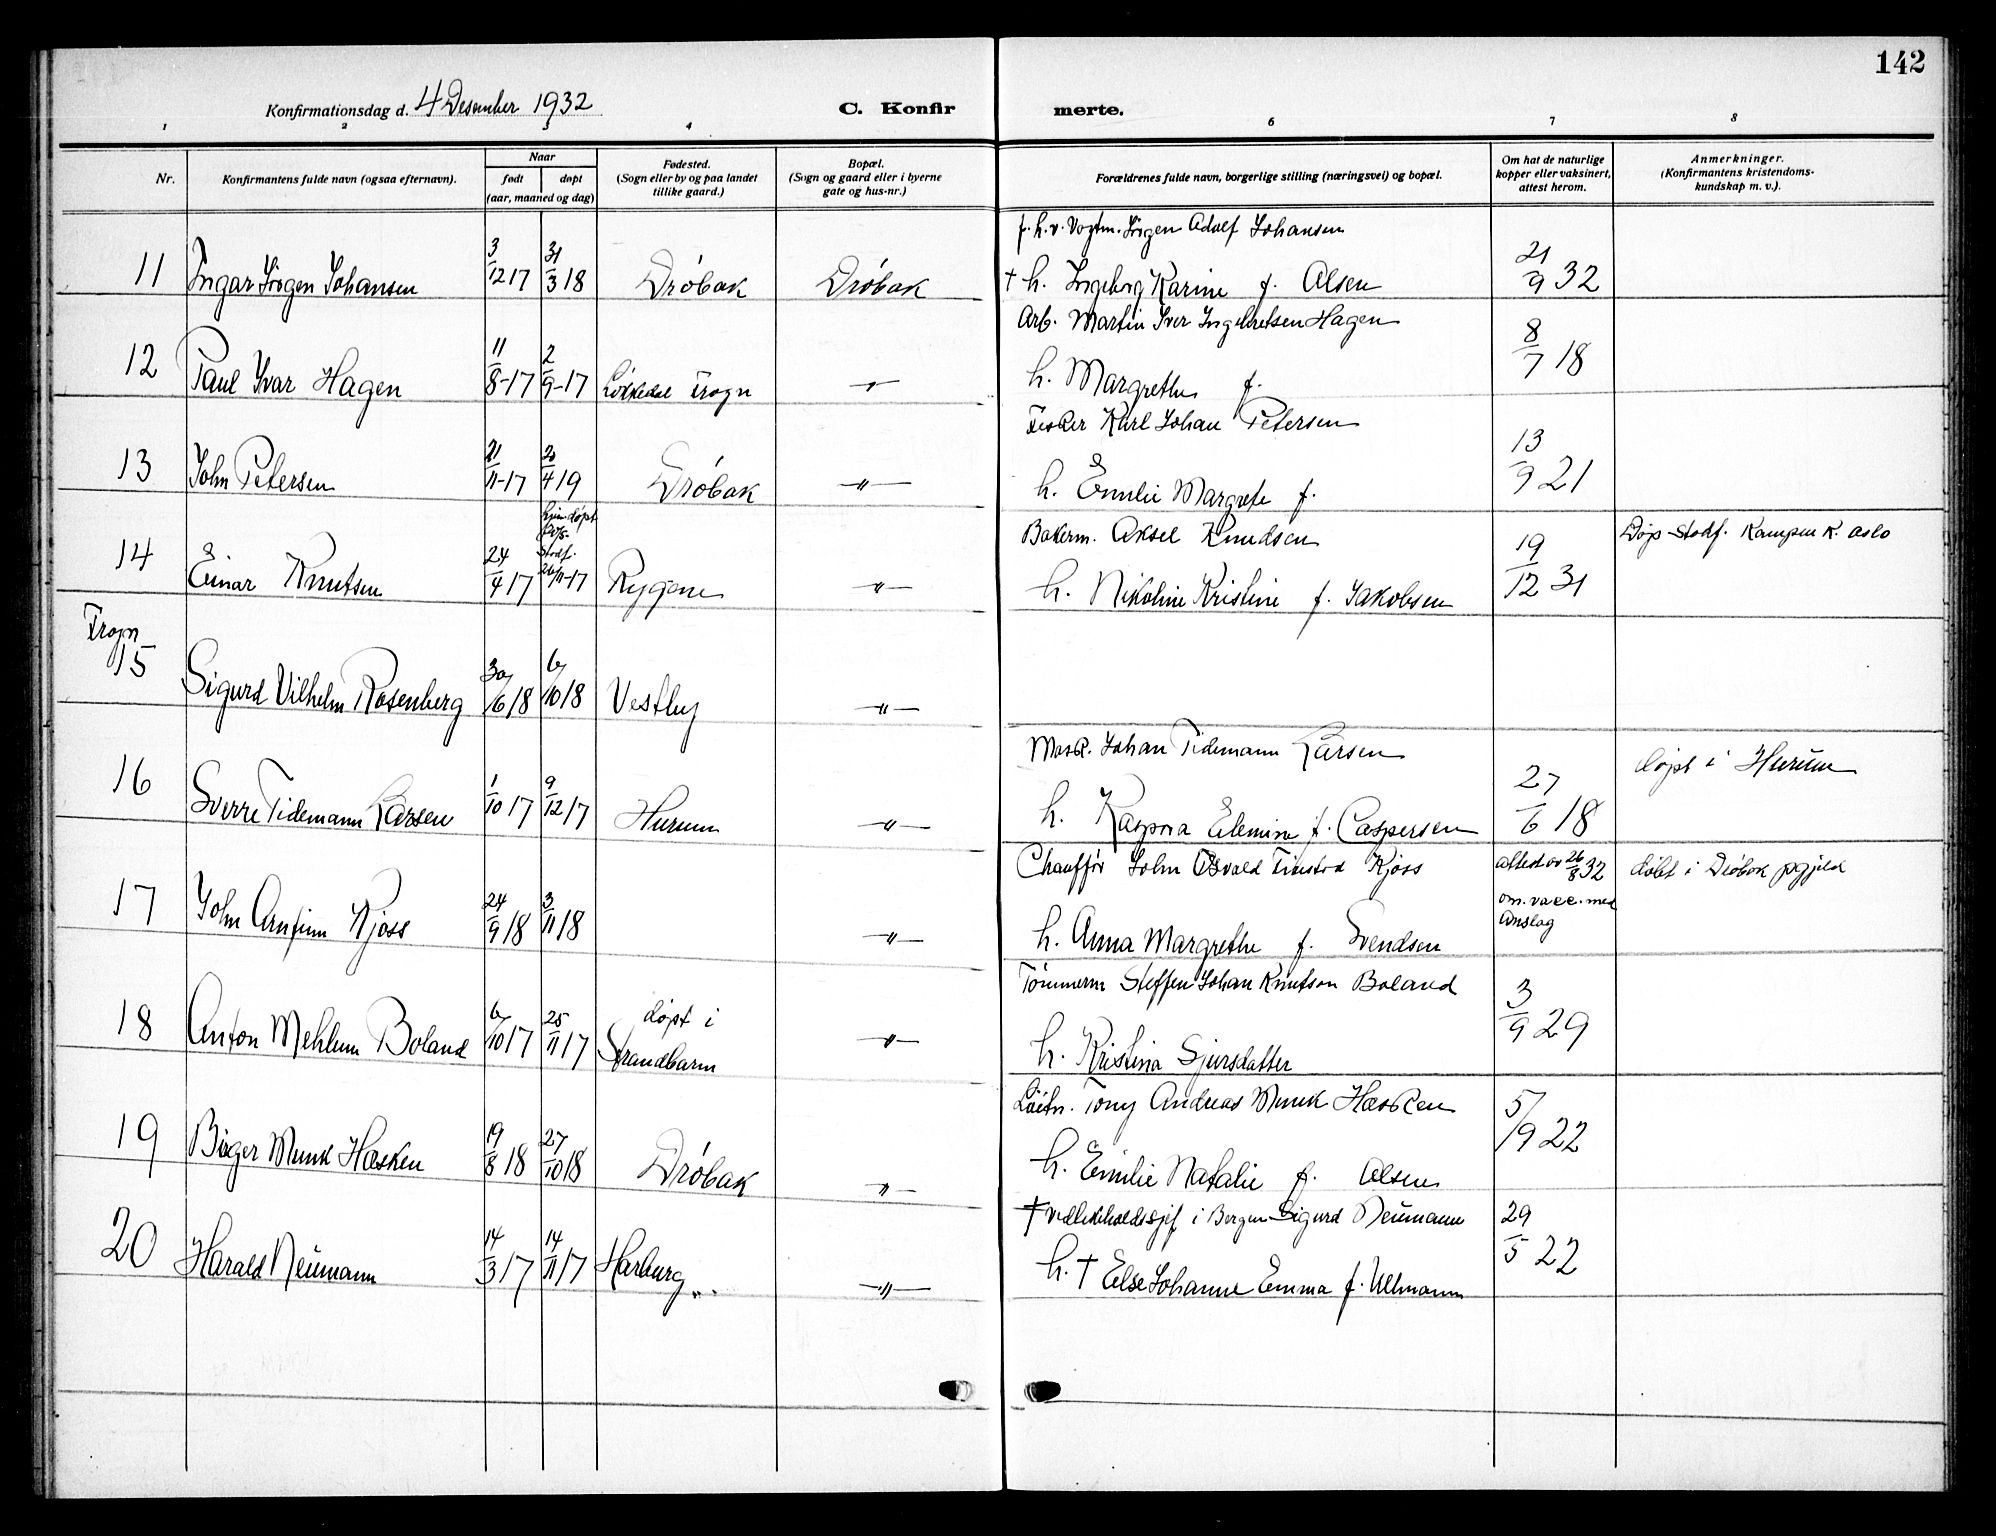 142
Konfirmationsdag d. 4 Desember 1932
C. Konfirmerte.
1 2 3 4 5 6 7 8
Nr.
Konfirmantens fulde navn (ogsaa efternavn).
Naar
født døpt
(aar, maaned og dag)
Fødested.
(Sogn eller by og paa landet
tillike gaard.)
Bopæl.
(Sogn og gaard eller i byerne
gate og hus-nr.)
Forældrenes fulde navn, borgerlige stilling (næringsvei) og bopæl.
Om hat de naturlige
kopper eller vaksinert,
attest herom.
Anmerkninger.
(Konfirmantens kristendoms-
kundskap m. v.).
f. h. v. Vogtm. Jörgen Adolf Johansen
11 Ingar Jörgen Johansen 3/12 17 31/3 18 Dröbak Dröbak † h. Ingeborg Karine f. Olsen 21/9 32
Arb. Martin Iver Ingebretsen Hagen
12 Paul Ivar Hagen 11/8-17 2/9-17 Frogn –"– h. Margrethe f. 8/7 18
Fisker Karl Johan Petersen
13 John Petersen 21/11-17 20/4 19 Dröbak –"– h. Emilie Margrete f. 13/9 21
Bakerm. Aksel Knudsen Døp Stadf. Kampen K. Oslo
14 Einar Knutsen 24/4 17 hjemdøpt Stadf. 26/11-17 Rygene –"– h. Nikoline Kristine f. Jakobsen 19/12 31
Frogn
15 Sigurd Vilhelm Rosenberg 30/6 18 6/10 18 Vestby –"–
Mask. Johan Tidemann Larsen døpt i Hurum
16 Sverre Tidemann Larsen 1/10 17 9/12 17 Hurum –"– h. Kaspara Elemine f. Caspersen 27/6 18
Chaufför John Osvald Kjoss attest av 26/8 32 döbt i Dröbak pgjeld
om. vacc. med
Anslag
17 John Arnfinn Kjoss 24/9 18 3/11 18 –"– h. Anna Margrethe f. Svendsen
Tömmerm Steffen Johan Knutson Boland
18 Anton Mehlum Boland 6/10 17 25/11 17 døpt i Strandbarm –"– h. Kristina Sjursdatter 3/9 29
Löitn. Tony Andreas Munk Hæsken
19 Birger Munk Hæsken 19/8 18 27/10 18 Dröbak –"– h. Emilie Natalie f. Olsen 5/9 22
† vedlikeholdssjef i Bergen Sigurd Neumann
20 Harald Neumann 14/3 17 14/11 17 Harburg –"– h. † Else Johanne Emma f. Ullmann 29/5 22